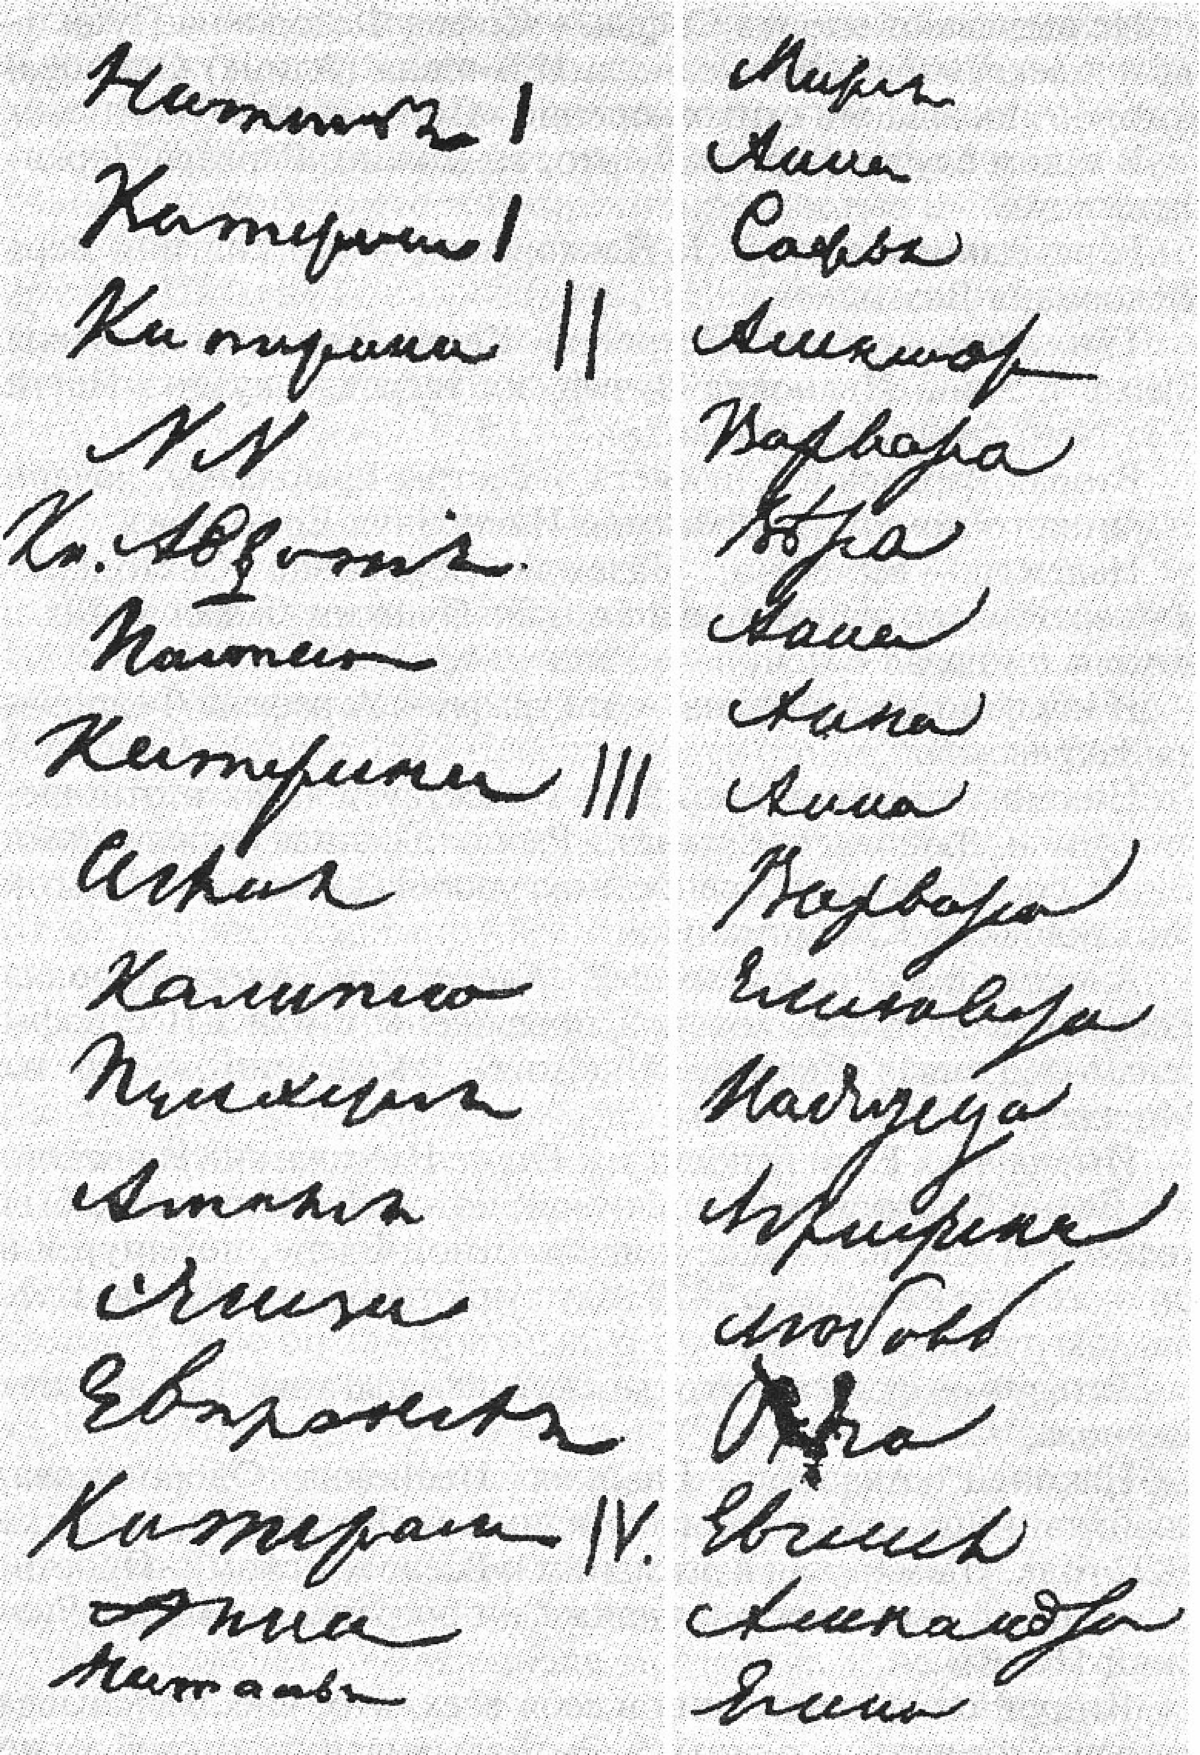 Наталья I
Катерина I
Катерина II
NN
Кн. Авдотія.
Настасья
Катерина III
Аглая
Калипсо
Пульхерія
Амалія
Элиза
Евпраксея
Катерина IV.
Анна
Наталья
Марія
Анна
Софья
Александра
Варвара
Вѣра
Анна
Анна
Анна
Варвара
Елизавета
Надежда
Аграфена
Любовь
Ольга
Евгенія
Александра
Елена